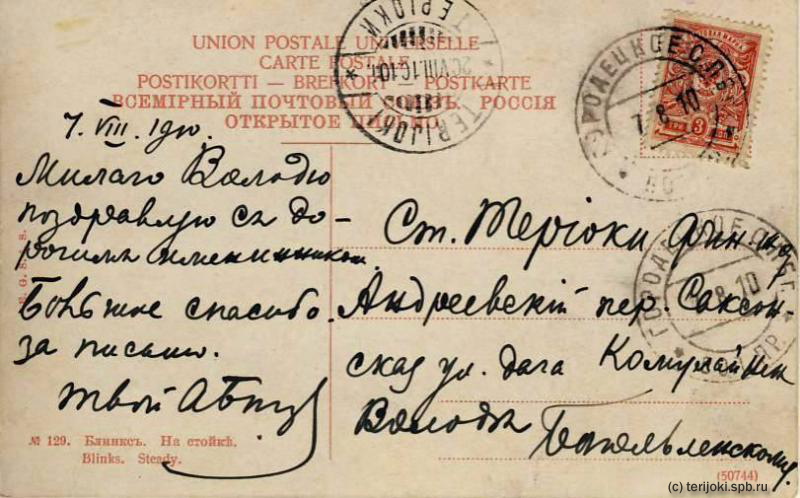 UNION POSTALE UNIVERSELLE
CARTE POSTALE
POSTIKORTTI — BREFKORT — POSTKARTE
ВСЕМІРНЫЙ ПОЧТОВЫЙ РОССІЯ
ОТКРЫТОЕ ПИСЬМО
ТЕРІОКИ
20.VIII.10
TERIJOKI
7.8.10
3
7. VIII. 1910.
Милаго Володю
поздравляю съ до-
рогимъ именинникомъ.
Большое спасибо
за письмо.
твой
Ст. Теріоки Фин
Андреевскій пер. Саксон-
ская ул. дача
Володѣ
8.10
№ 129. Блинксъ. На стойкѣ.
Blinks. Steady.
(50744)
(c) terijoki.spb.ru